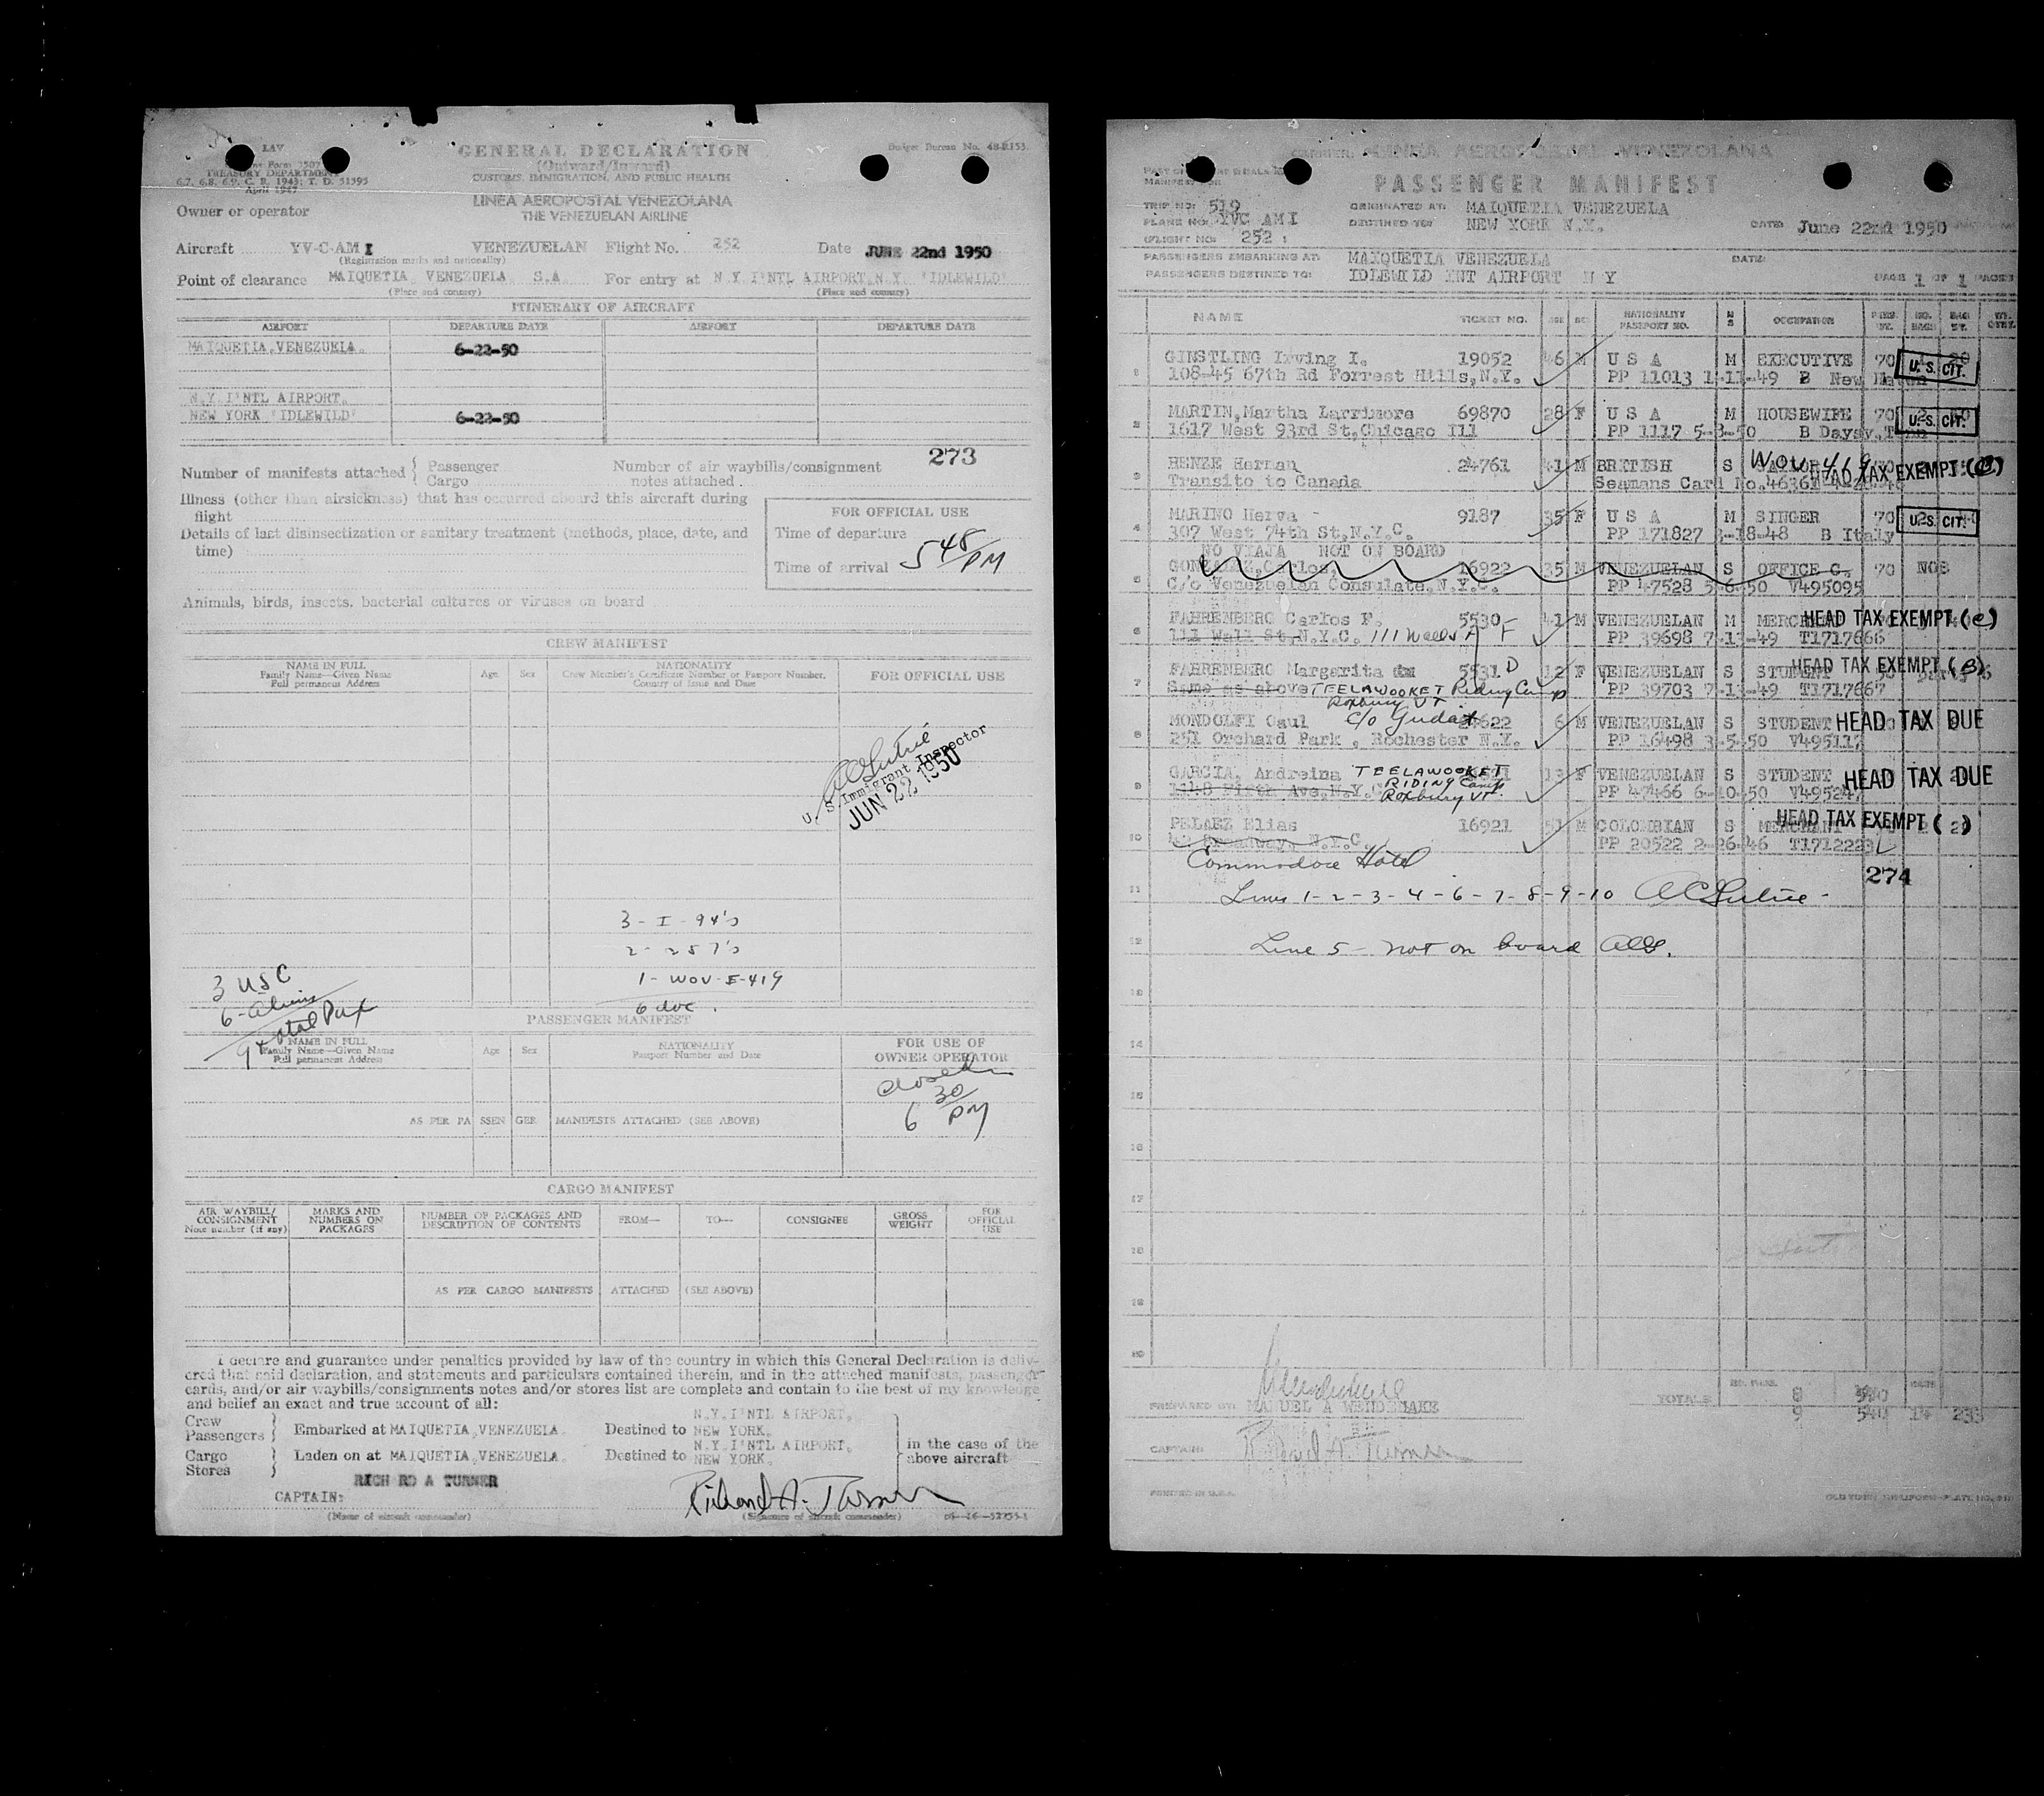 LAV
TREASURY DEPARTMENT
6.7, 6.8, 6.9, C. R. 1943; T. D. 51595
April 1947
GENERAL DECLARATION
(Outward/Inward)
CUSTOMS, IMMIGRATION, AND PUBLIC HEALTH
Budget Bureau No. 48-R153.
LINEA AEROPOSTAL VENEZOLANA
THE VENEZUELAN AIRLINE
Owner or operator
Aircraft YV-C-AMI VENEZUELAN Flight No. 252 Date JUNE 22nd 1950
(Registration marks and nationality)
Point of clearance MAIQUETIA, VENEZUELA S.A. For entry at N.Y. I'NTL AIRPORT,N.Y. 'IDLEWILD'
(Place and country) (Place and country)
ITINERARY OF AIRCRAFT
AIRPORT DEPARTURE DATE AIRPORT DEPARTURE DATE
MAIQUETIA,VENEZUELA. 6-22-50
N.Y. I'NTL AIRPORT.
NEW YORK 'IDLEWILD' 6-22-50
273
Number of manifests attached Passenger Number of air waybills/consignment
Cargo notes attached
Illness (other than airsickness) that has occurred aboard this aircraft during
flight
Details of last disinsectization or sanitary treatment (methods, place, date, and
time)
FOR OFFICIAL USE
Time of departure
Time of arrival 5 48 PM
Animals, birds, insects, bacterial cultures or viruses on board
CREW MANIFEST
NAME IN FULL
Family Name—Given Name
Full permanent Address
Age Sex
NATIONALITY
Crew Member's Certificate Number or Passport Number,
Country of Issue and Date
FOR OFFICIAL USE
U. S. Immigrant Inspector
JUN 22 1950
3 - I - 94's
2 - 257's
1 - WOV-I-419
6 doc.
3 USC
6 - Aliens
9 total Pax
PASSENGER MANIFEST
NAME IN FULL
Family Name—Given Name
Full permanent Address
Age Sex
NATIONALITY
Passport Number and Date
FOR USE OF
OWNER OPERATOR
closed
6 30 PM
AS PER PASSENGER MANIFESTS ATTACHED (SEE ABOVE)
CARGO MANIFEST
AIR WAYBILL/
CONSIGNMENT
Note number (if any)
MARKS AND
NUMBERS ON
PACKAGES
NUMBER OF PACKAGES AND
DESCRIPTION OF CONTENTS
FROM— TO— CONSIGNEE
GROSS
WEIGHT
FOR
OFFICIAL
USE
AS PER CARGO MANIFESTS ATTACHED (SEE ABOVE)
I declare and guarantee under penalties provided by law of the country in which this General Declaration is deliv-
ered that said declaration, and statements and particulars contained therein, and in the attached manifests, passenger
cards, and/or air waybills/consignments notes and/or stores list are complete and contain to the best of my knowledge
and belief an exact and true account of all:
Crew
Passengers Embarked at MAIQUETIA,VENEZUELA. Destined to N.Y.I'NTL AIRPORT, NEW YORK.
Cargo
Stores Laden on at MAIQUETIA,VENEZUELA. Destined to N.Y.I'NTL AIRPORT, NEW YORK.
in the case of the
above aircraft
RICH RD A TURNER
CAPTAIN: Richard A. Turner
(Name of aircraft commander) (Signature of aircraft commander)
CARRIER: LINEA AEROPOSTAL VENEZOLANA
PASSENGER MANIFEST
TRIP NO: 519 ORIGINATED AT: MAIQUETIA VENEZUELA
PLANE NO: YVC AMI DESTINED TO: NEW YORK N.Y. DATE: June 22nd 1950
FLIGHT NO: 252
PASSENGERS EMBARKING AT: MAIQUETIA VENEZUELA DATE:
PASSENGERS DESTINED TO: IDLEWILD INT AIRPORT N Y PAGE 1 OF 1 PAGES
NAME TICKET NO. AGE NATIONALITY PASSPORT NO. M S OCCUPATION
1 GINSTLING Irving I. 19052 46 M U S A M EXECUTIVE 70 U.S. CIT.
108-45 67th Rd Forrest Hills,N.Y. PP 11013 1-11-49 B New Haven
2 MARTIN,Martha Larrimore 69870 28 F U S A M HOUSEWIFE 70 U.S. CIT.
1617 West 93rd St,Chicago Ill PP 1117 5-3-50 B Daysy,Tenn
3 HENZE Herman 24761 41 M BRITISH S WOV 419 HEAD TAX EXEMPT
Transito to Canada Seamans Card No.
4 MARINO Herva 9187 35 F U S A M SINGER 70 U.S. CIT.
307 West 74th St,N.Y.C. PP 171827 3-18-48 B Italy
NO VIAJA NOT ON BOARD
5 GONZALEZ,Carlos, 16922 35 M VENEZUELAN S OFFICE C. 70 NOB
C/o Venezuelan Consulate,N.Y.C. PP 47528 5-6-50 V495095
6 FAHRENBERG Carlos F. 5530 41 M VENEZUELAN M HEAD TAX EXEMPT (C)
111 Wall St,N.Y.C. 111 Wall St F PP 39698 7-13-49 T1717666
7 FAHRENBERG Margarita 5531 D 12 F VENEZUELAN S STUDENT HEAD TAX EXEMPT (B)
Same as above TEELAWOOKET Riding Camp PP 39703 7-13-49 T1717667
Roxbury VT
8 MONDOLFI Caul 6 M VENEZUELAN S STUDENT HEAD TAX DUE
251 Orchard Park , Rochester N.Y. PP 16498 3-5-50 V495117
9 GARCIA, Andreina TEELAWOOKET 13 F VENEZUELAN S STUDENT HEAD TAX DUE
1148 Fifth Ave,N.Y.C RIDING Camp PP 47466 6-10-50
Roxbury VT.
10 PELAEZ Elias 16921 51 M COLOMBIAN S MERCHANT HEAD TAX EXEMPT ( )
Broadway, N.Y.C. PP 20522 2-26-46 T1712223
Commodore Hotel
274
11 Lines 1-2-3-4-6-7-8-9-10
12 Line 5 - not on board
13
14
15
16
17
18
19
20
TOTALS 8
9 540 14 233
PREPARED BY: MANUEL A WENDEHAKE
CAPTAIN: Richard A. Turner
PRINTED IN U.S.A.